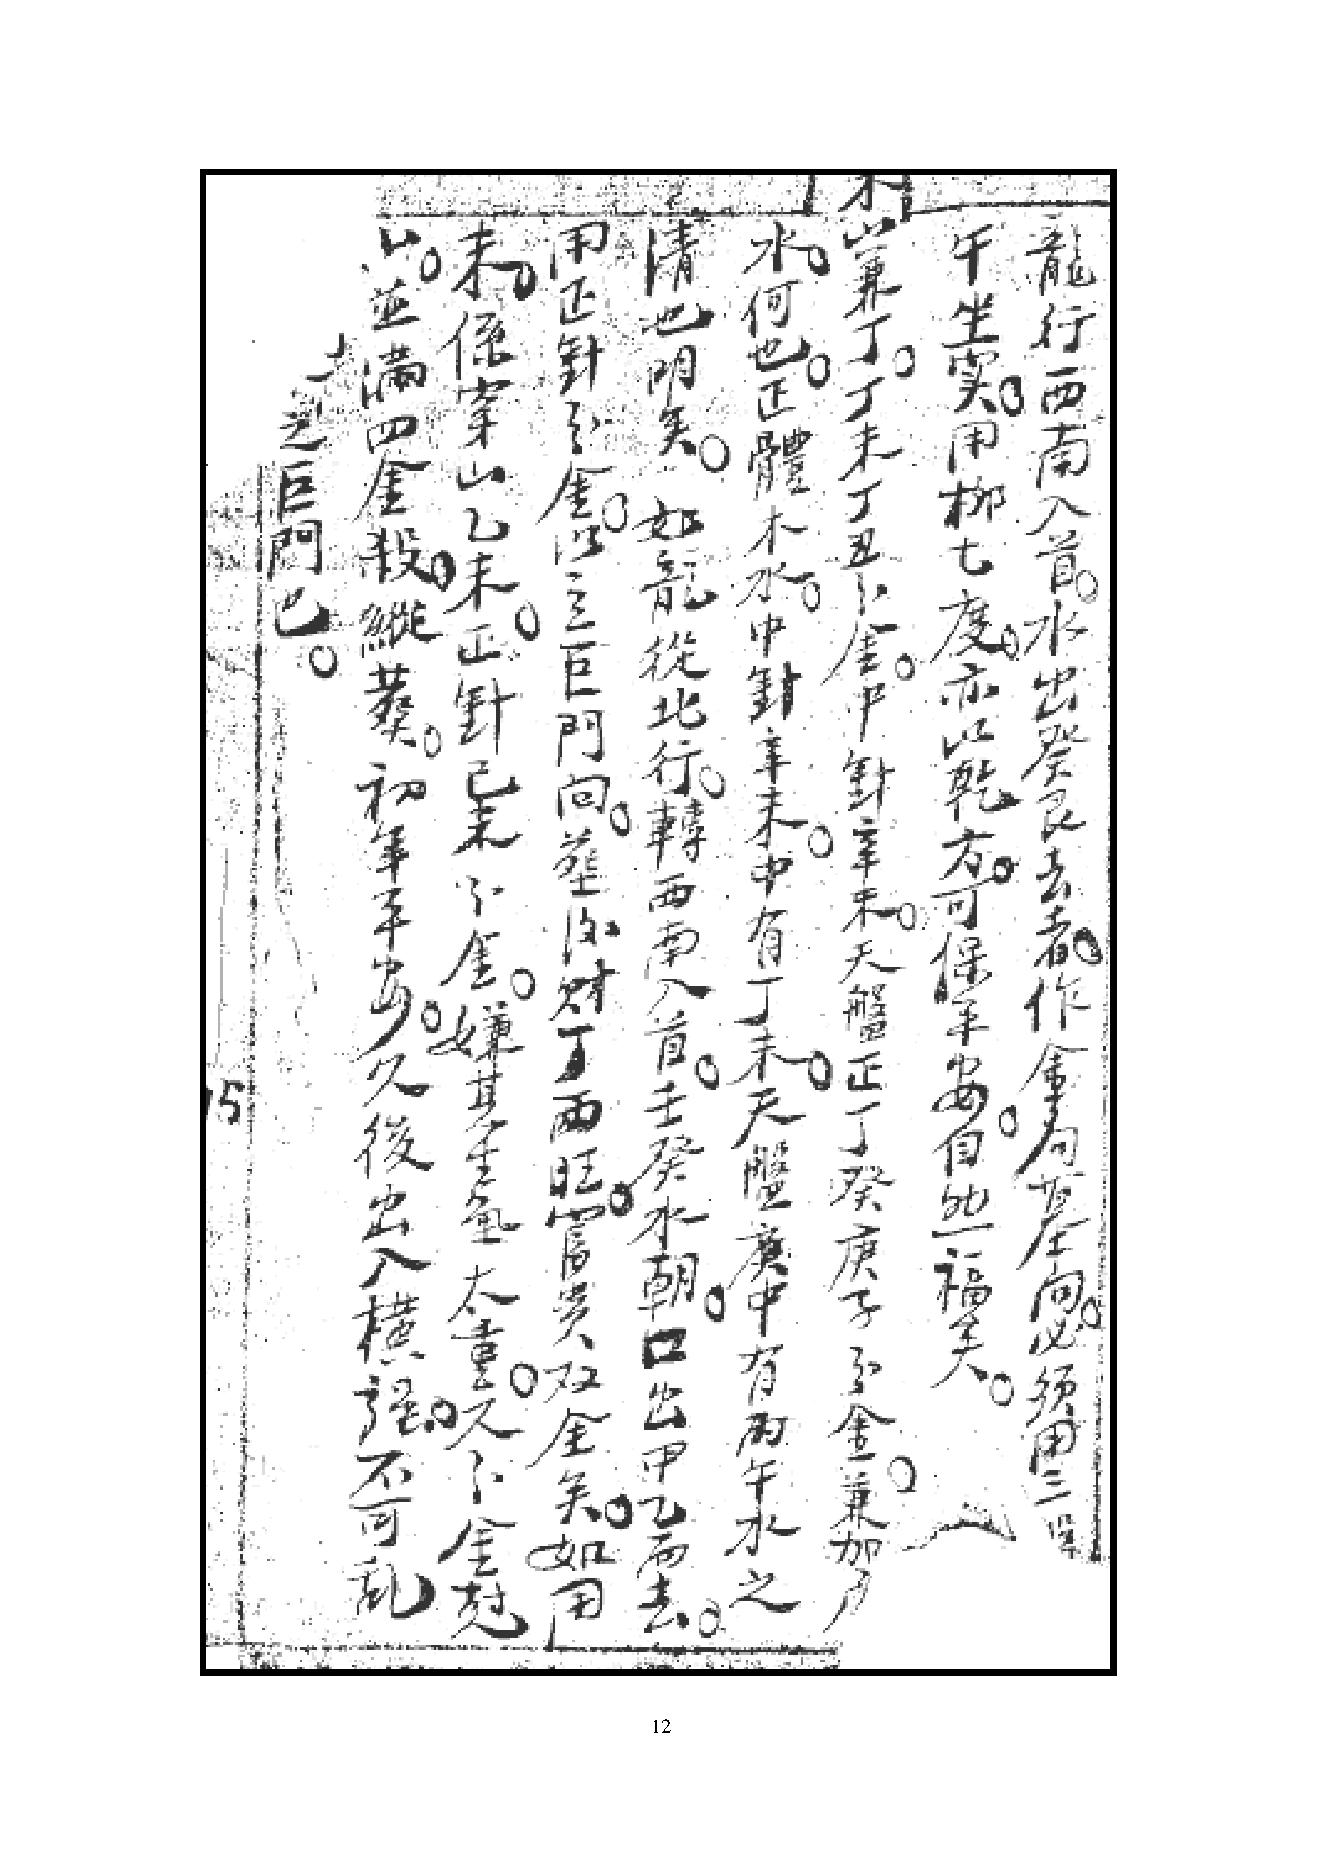 龍行西南入首。水出癸艮去者。作金局墓向。必須用三
午坐穴。用柳七度。亦以乾方。可保平安。自然福矣。
未山兼丁。丁未丁丑分金。中針辛未。天盤正丁癸庚子分金。兼加
水。何也。正體木水。中針辛未。中有丁未。天盤廣中有丙午水之
清也明矣。如龍從北行。轉西南入首。壬癸水朝。口出甲乙而去。
用正針分金。以立巨門向。葬後財丁兩旺。富貴双全矣。如用
未。係穿山乙未。正針己未分金。嫌其生氣太喜。又分金
山。並滿四金殺。縱葬。初年平安。久後出入橫強。不可亂
土
巨門也。
15
12